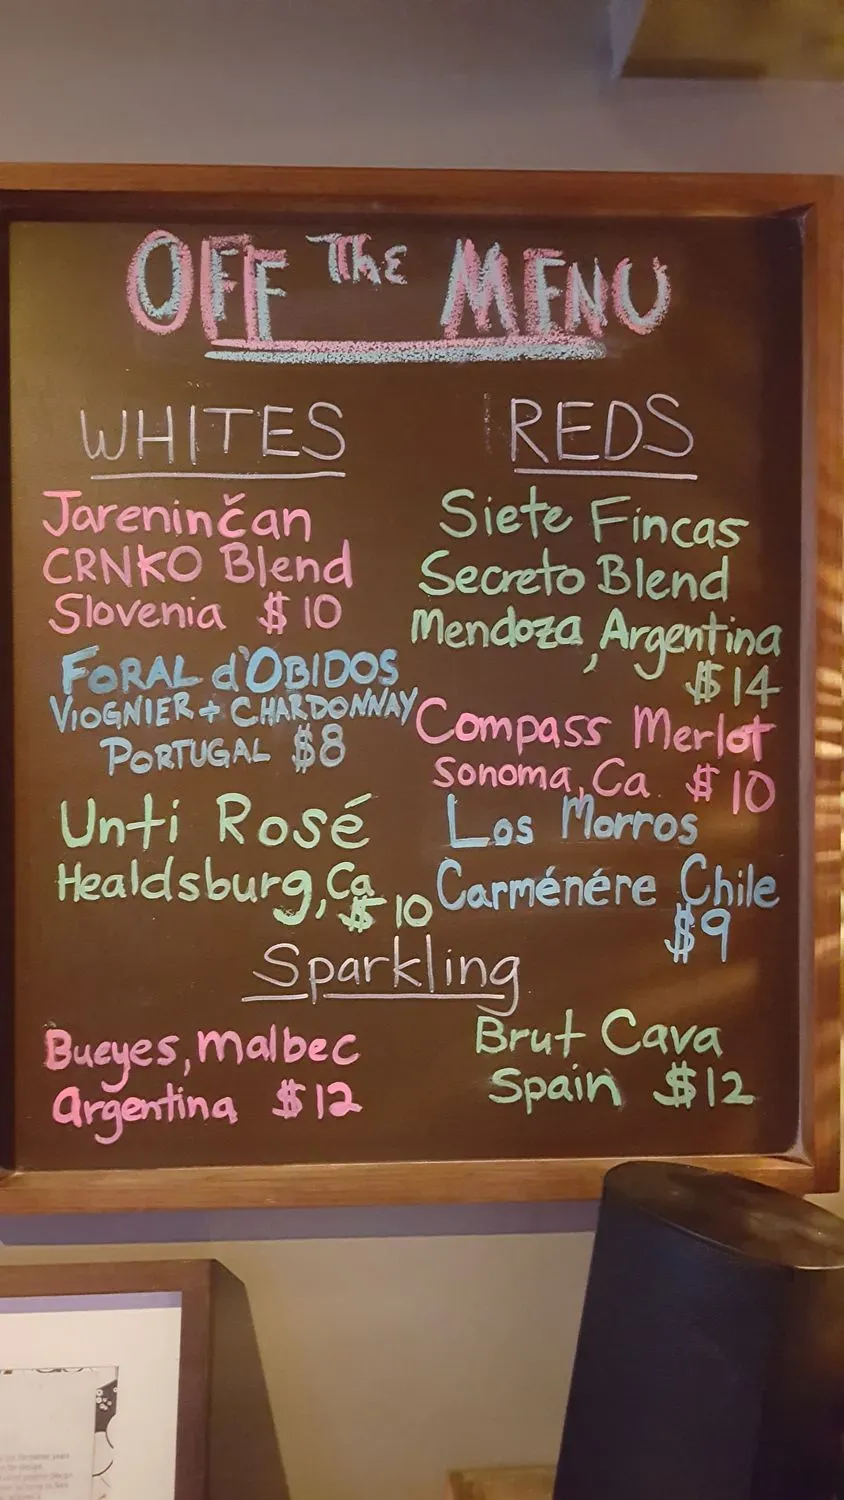 OFF The MENU
WHITES
Jareninčan
CRNKO Blend
Slovenia $10
FORAL d'OBIDOS
VIOGNIER + CHARDONNAY
PORTUGAL $8
Unti Rosé
Healdsburg, Ca
$10
REDS
Siete Fincas
Secreto Blend
Mendoza, Argentina
$14
Compass Merlot
Sonoma, Ca. $10
Los Morros
Carménére Chile
$9
Sparkling
Bueyes, malbec
argentina $12
Brut Cava
Spain $12